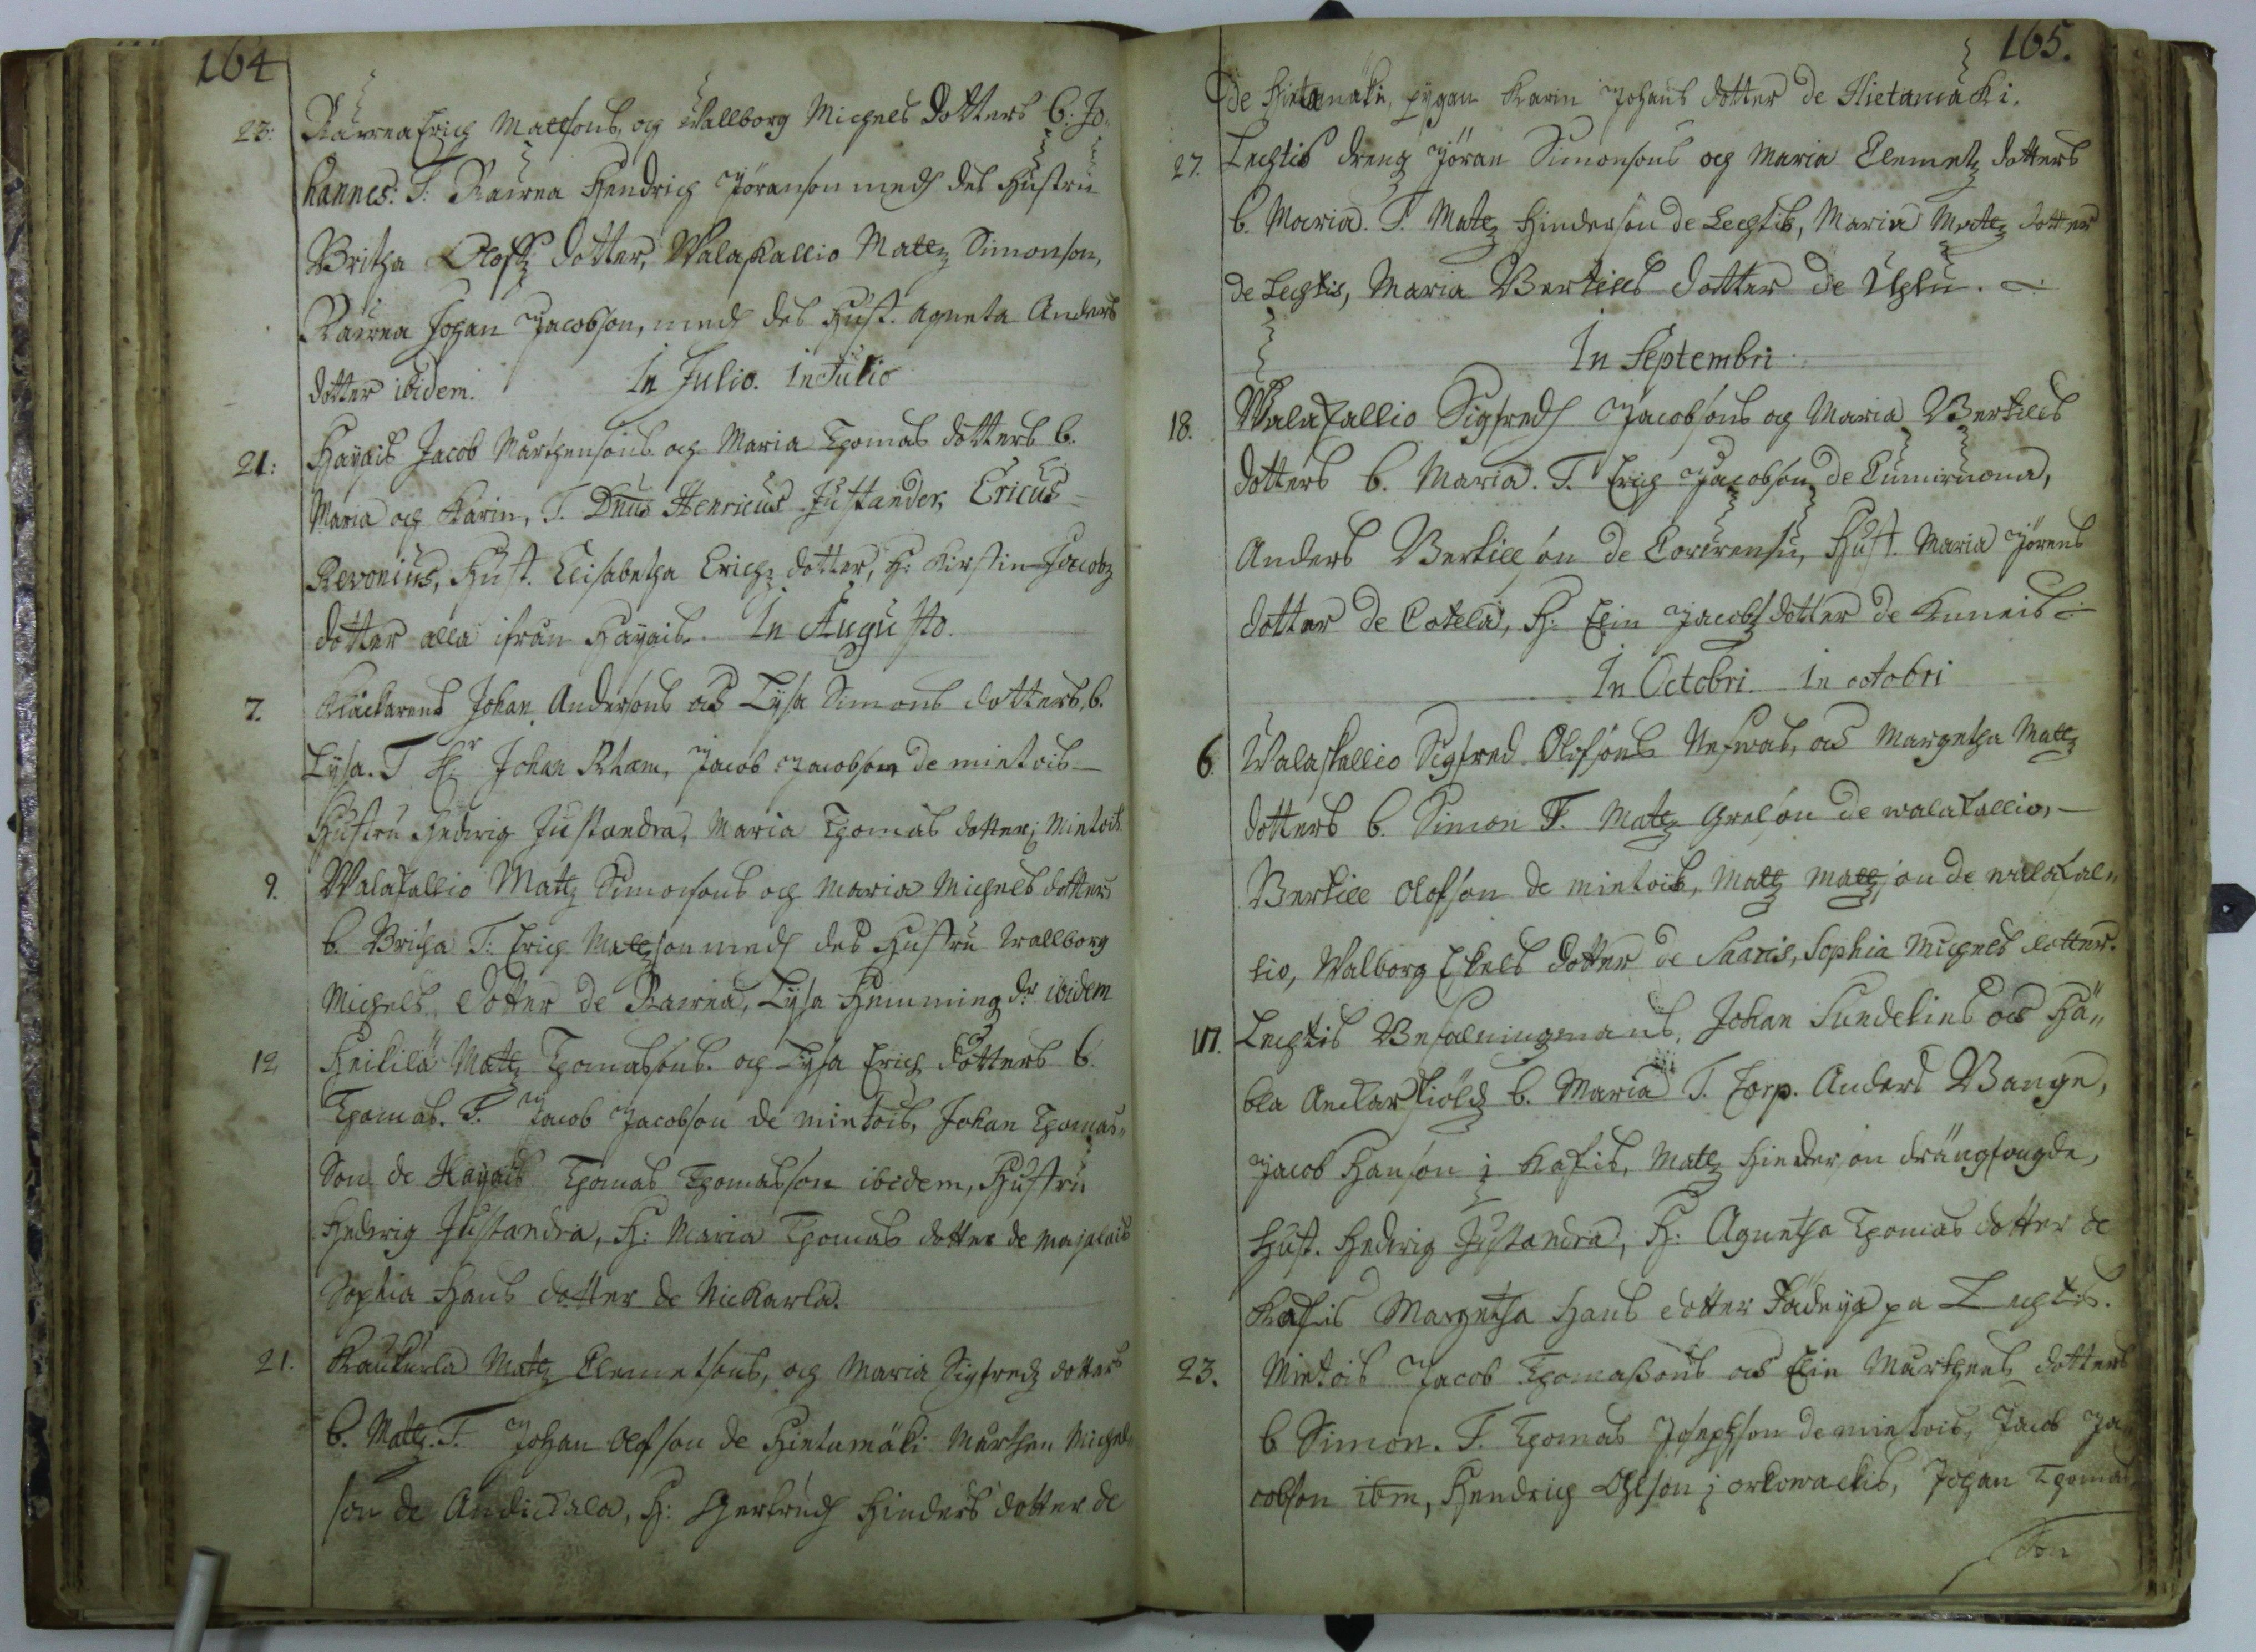 164
23: Raurea Erich Matssons, och Wallborg Michels Dotters b: Jo-
hannes: T. Raurea Hendrich Jöranson medh des Hustru
Britha Olofz dotter, Walaskallio Matz Simonson,
Raurea Johan Jacobson, medh des Hust. Agneta Anders
dotter ibidem. In Julio. In Julio
21: Hayais Jacob Mårthensons och Maria Thomas dotters b.
Maria och Karin, T. Dnus Henricus Justander, Ericus
Revonius, Hust. Elisabetha Erichz dotter, H: Kirstin Jacobz
dotter alla ifrån Hayais. In Augusto.
7. Johan Andersons och Lysa Simons dotters, b.
Lysa. T Hr Johan Rham, Jacob Jacobson de mietois
Hustru Hedwig Justandra, Maria Thomas dotter; Mietois
9. Walaskallio Matz Simonsons och Maria Michels dotters
b. Britha T: Erich Matzson medh des Hustru Wallborg
Michels dotter de Raurea, Lysa Hemming dr ibidem
12, Heikilä Matz Thomassons. och Lysa Erich dotters b.
Thomas. T. Jacob Jacobson de mietois, Johan Thomas"
Son de Hayais Thomas Thomasson ibidem, Hustru
Hedwig Justandra, H: Maria Thomas dotter de majalais
Sophia Hans dotter de Nickarla.
21. Kaukurla Matz Clemetsons, och Maria Sigfredz dotters
b. Matz. T. Johan Olofson de Hietamäki Mårthen Michel
son de Andickala, H: Gertrudh Hinders dotter de
165.
de Hietamäki, pygan Karin Johans dotter de Hietamäki.
27. Lechtis dreng Jöran Simonsons och Maria Clemetz dotters
b. Maria. T. Matz Hinderson de Lechtis, Maria Matz dotter
de Lechtis, Maria Bertills dotter de Uhlu.
In Septembri
18. Walaskallio Sigfredh Jacobsons och Maria Bertills
dotters b. Maria. T. Erich Jacobson de
Anders Bertillson de Hust. Maria Jörens
dotter de Cotela, H: Elin Jacobs dotter de Kuneis
In Octobri. In octobri
6. Walaskallio Sigfred Olofsons och Margetha Matz
dotters b. Simon T. Matz Grelson de walaskallio,
Bertill Olofson de mietois, Matz Matzson de walaskal"
lio, Walborg Eskels dotter de Saaris, Sophia Michels dotter.
17. Lechtis Befalningsmans, Johan Sundelius och Hä"
bla Anckarskiöldz b. Maria T. Corp. Anders Bange,
Jacob Hanson i Kaskis, Matz Hinderson drängfougde,
Hust. Hedwig Justandra, H: Agnetha Thomas dotter de
Kaskis Margetha Hans dotter på Lechtis.
23. Mietois Jacob Thomaßons och Elin Mårthens dotters
b Simon. T. Thomas Josephson de mietois, Jacob Ja
cobson ibm, Hendrich Ohlson i orkowackis, Johan Thomas
son